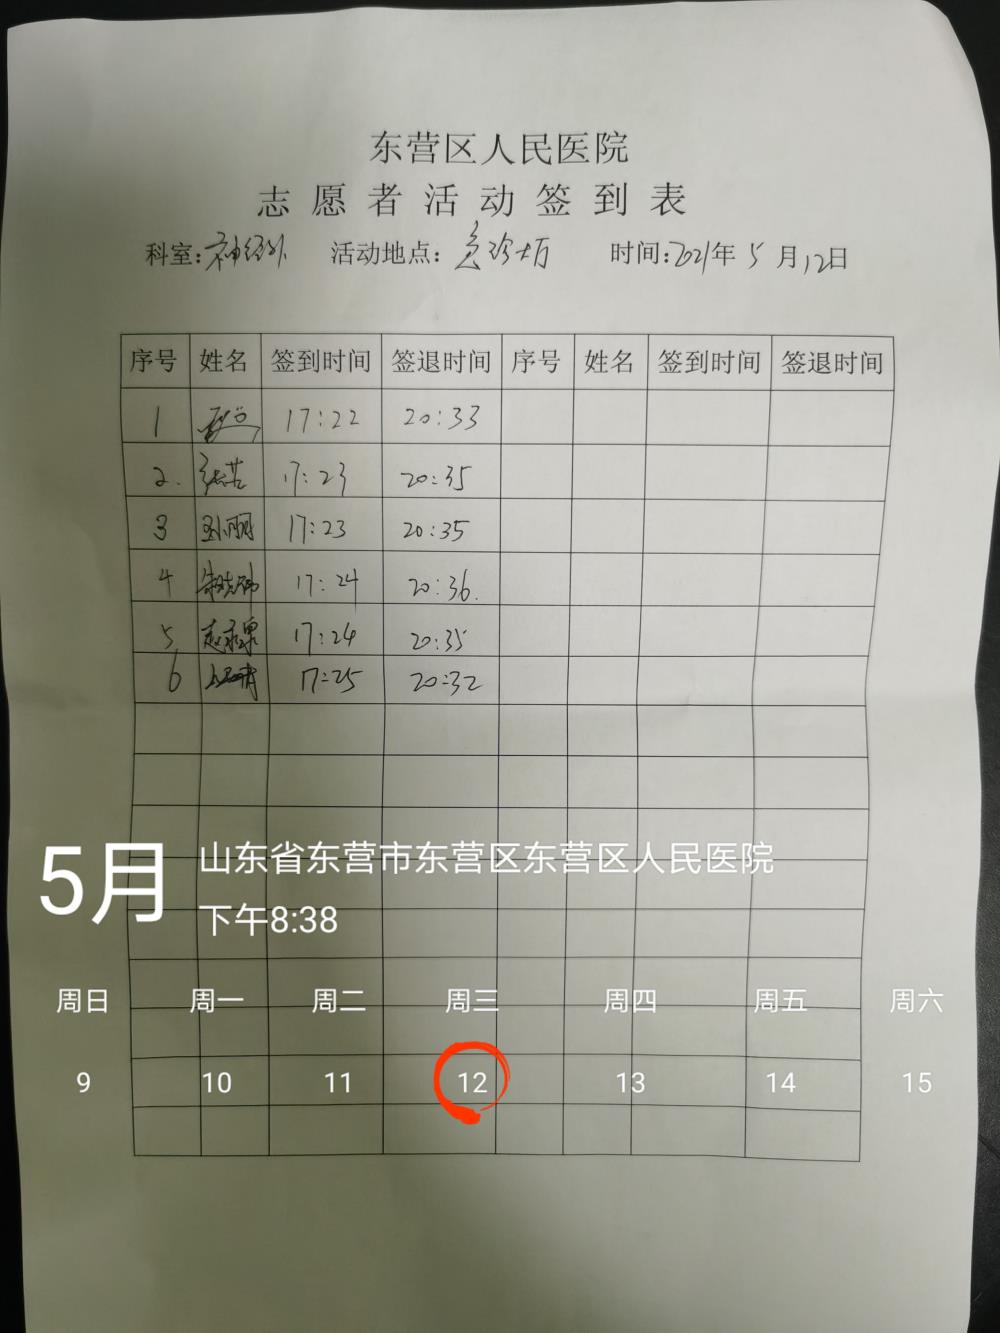 东营区人民医院
志愿者活动签到表
科室:神经外 活动地点:急诊 时间:2021年5月12日
序号 姓名 签到时间 签退时间 序号 姓名 签到时间 签退时间
1 17:22 20:33
2. 17:23 20:35
3 孙丽 17:23 20:35
4 17:24 20:36.
5 17:24 20:35
6 17:25 20:32
5月 山东省东营市东营区东营区人民医院
下午8:38
周日 周一 周二 周三 周四 周五 周六
9 10 11 12 13 14 15